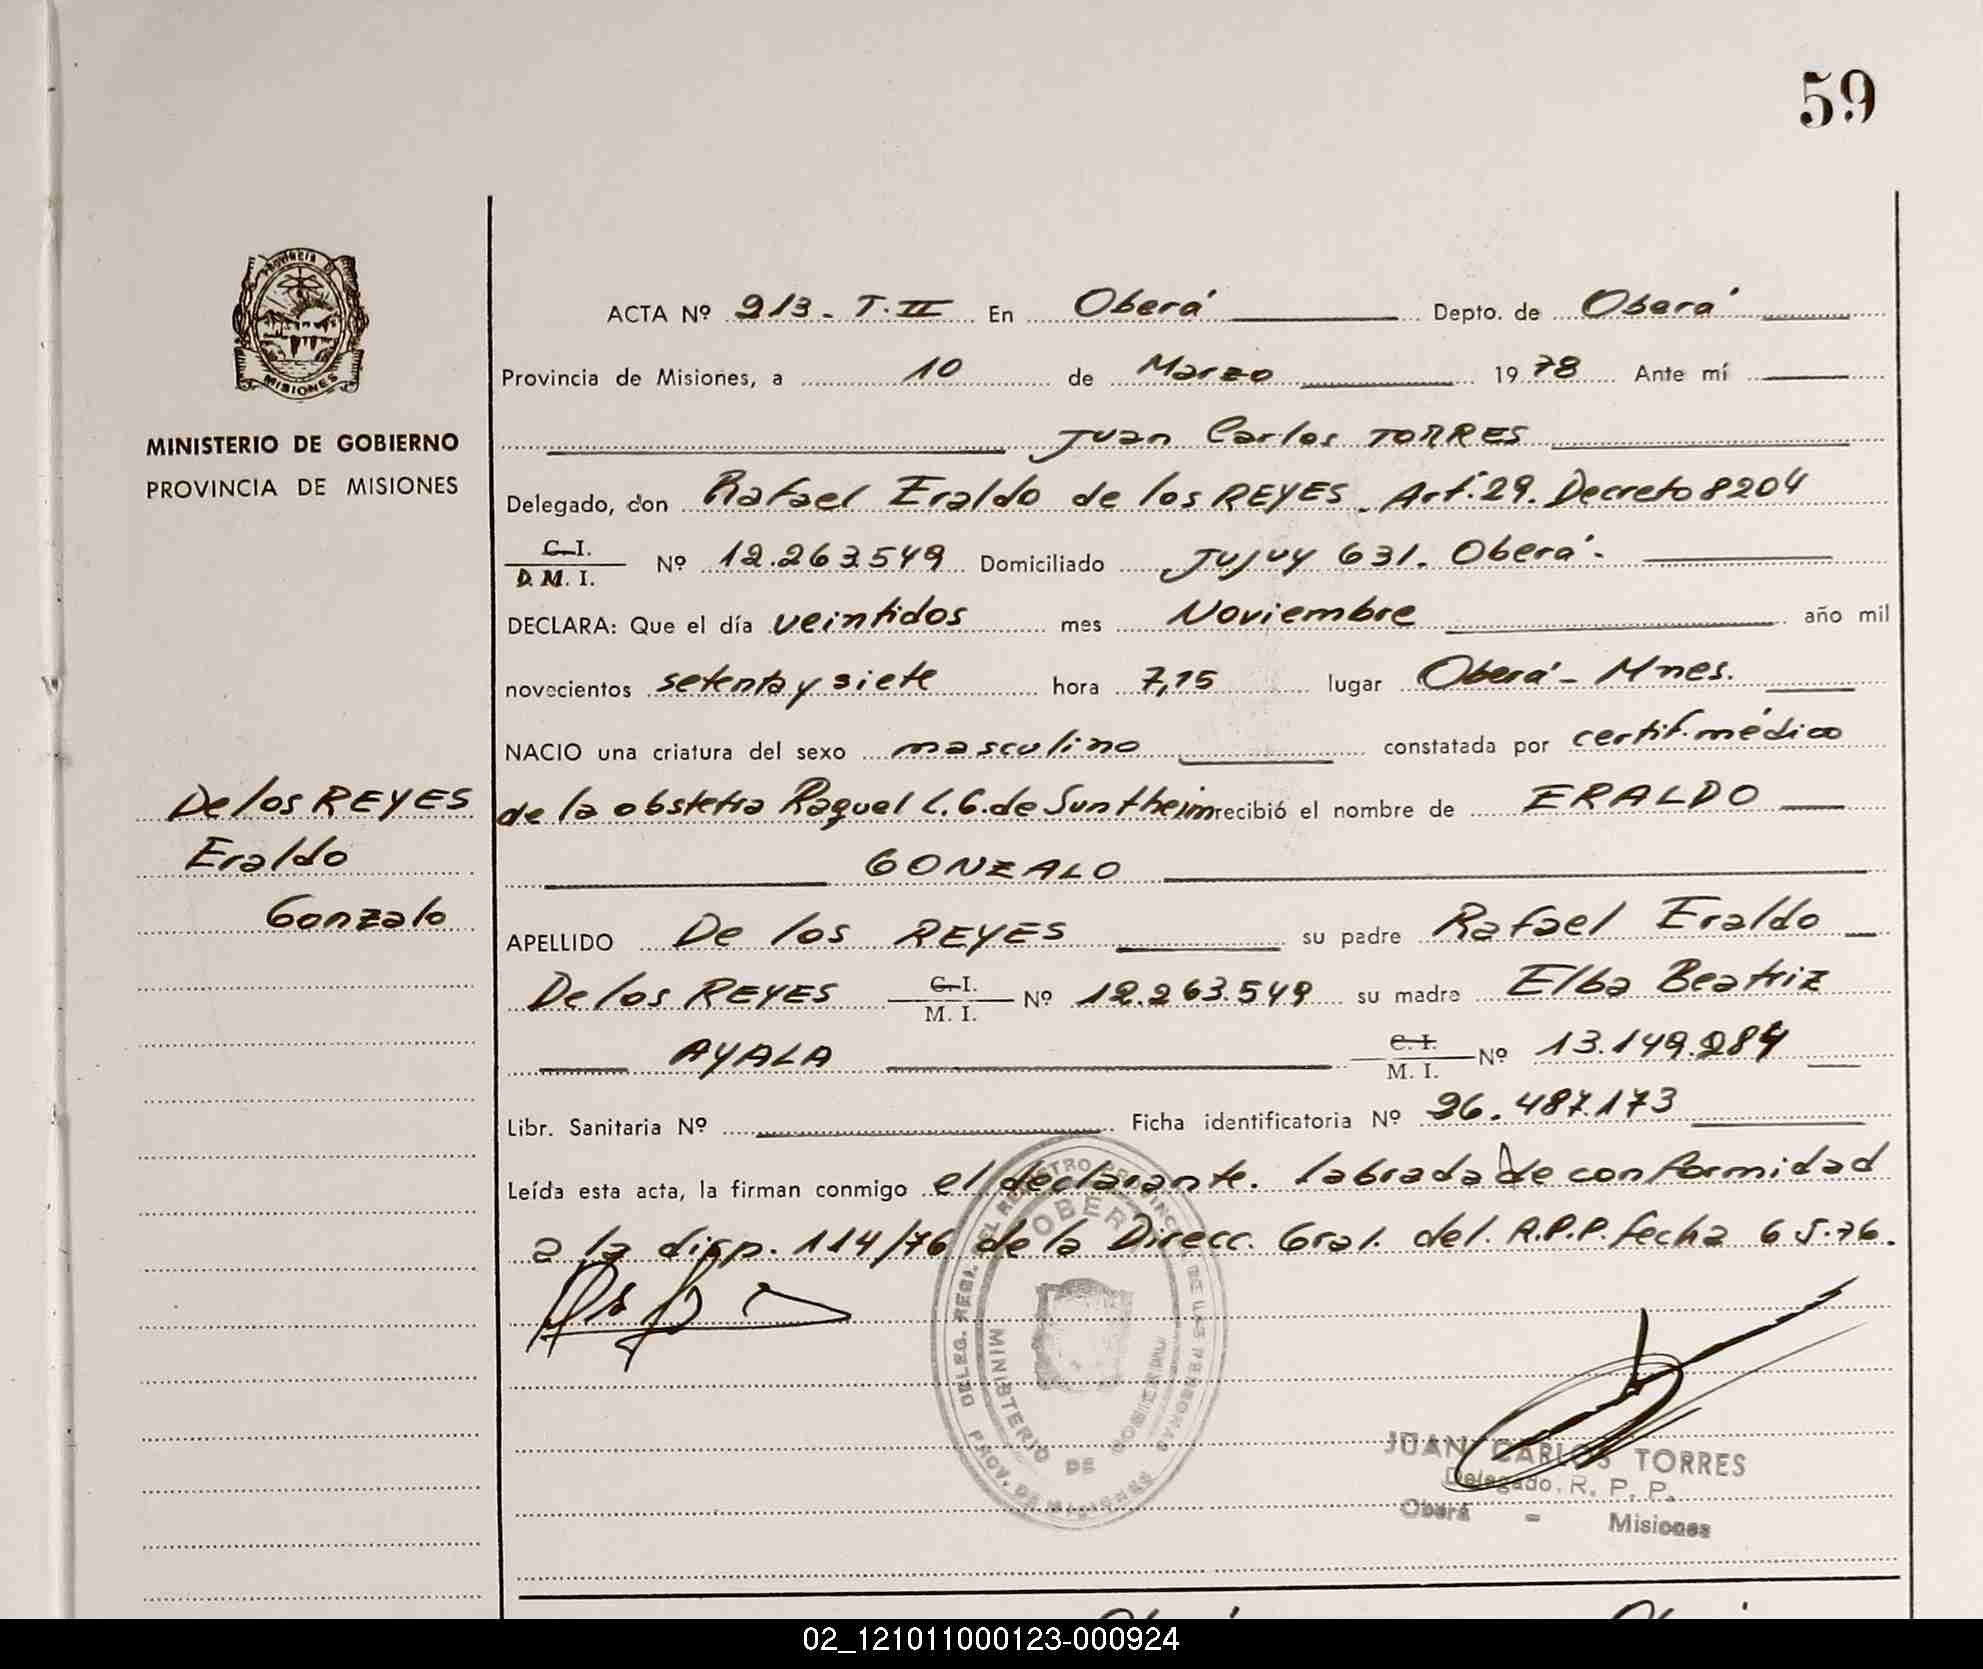 59
Provincia de
MISIONES
MINISTERIO DE GOBIERNO
PROVINCIA DE MISIONES
De los REYES
Eraldo
Gonzalo
ACTA Nº 913. T. II En Oberá Depto. de Oberá
Provincia de Misiones, a 10 de Marzo 1978 Ante mí
Juan Carlos TORRES
Delegado, don Rafael Eraldo de los REYES. Art. 29. Decreto 8204
C.I.
D.M.I. Nº 12.263.549 Domiciliado Jujuy 631. Oberá.
DECLARA: Que el día veintidos mes Noviembre año mil
novecientos setenta y siete hora 7,15 lugar Oberá - Mnes.
NACIO una criatura del sexo masculino constatada por certif. médico
de la obstetra Raquel L. G. de Suntheim recibió el nombre de ERALDO
GONZALO
APELLIDO De los REYES su padre Rafael Eraldo
De los REYES C.I. M.I. Nº 12.263.549 su madre Elba Beatriz
AYALA C.I. M.I. Nº 13.149.284
Libr. Sanitaria Nº Ficha identificatoria Nº 26.487.173
Leída esta acta, la firman conmigo el declarante. labrada de conformidad
a la disp. 114/76 de la Direcc. Gral. del. R.P.P. fecha 6.5.76.
DELEG. REGL. DEL REGISTRO PROVINCIAL DE LAS PERSONAS
OBERA
MINISTERIO DE GOBIERNO
PROV. DE MISIONES
JUAN CARLOS TORRES
Delegado. R. P. P.
Oberá - Misiones
02_121011000123-000924